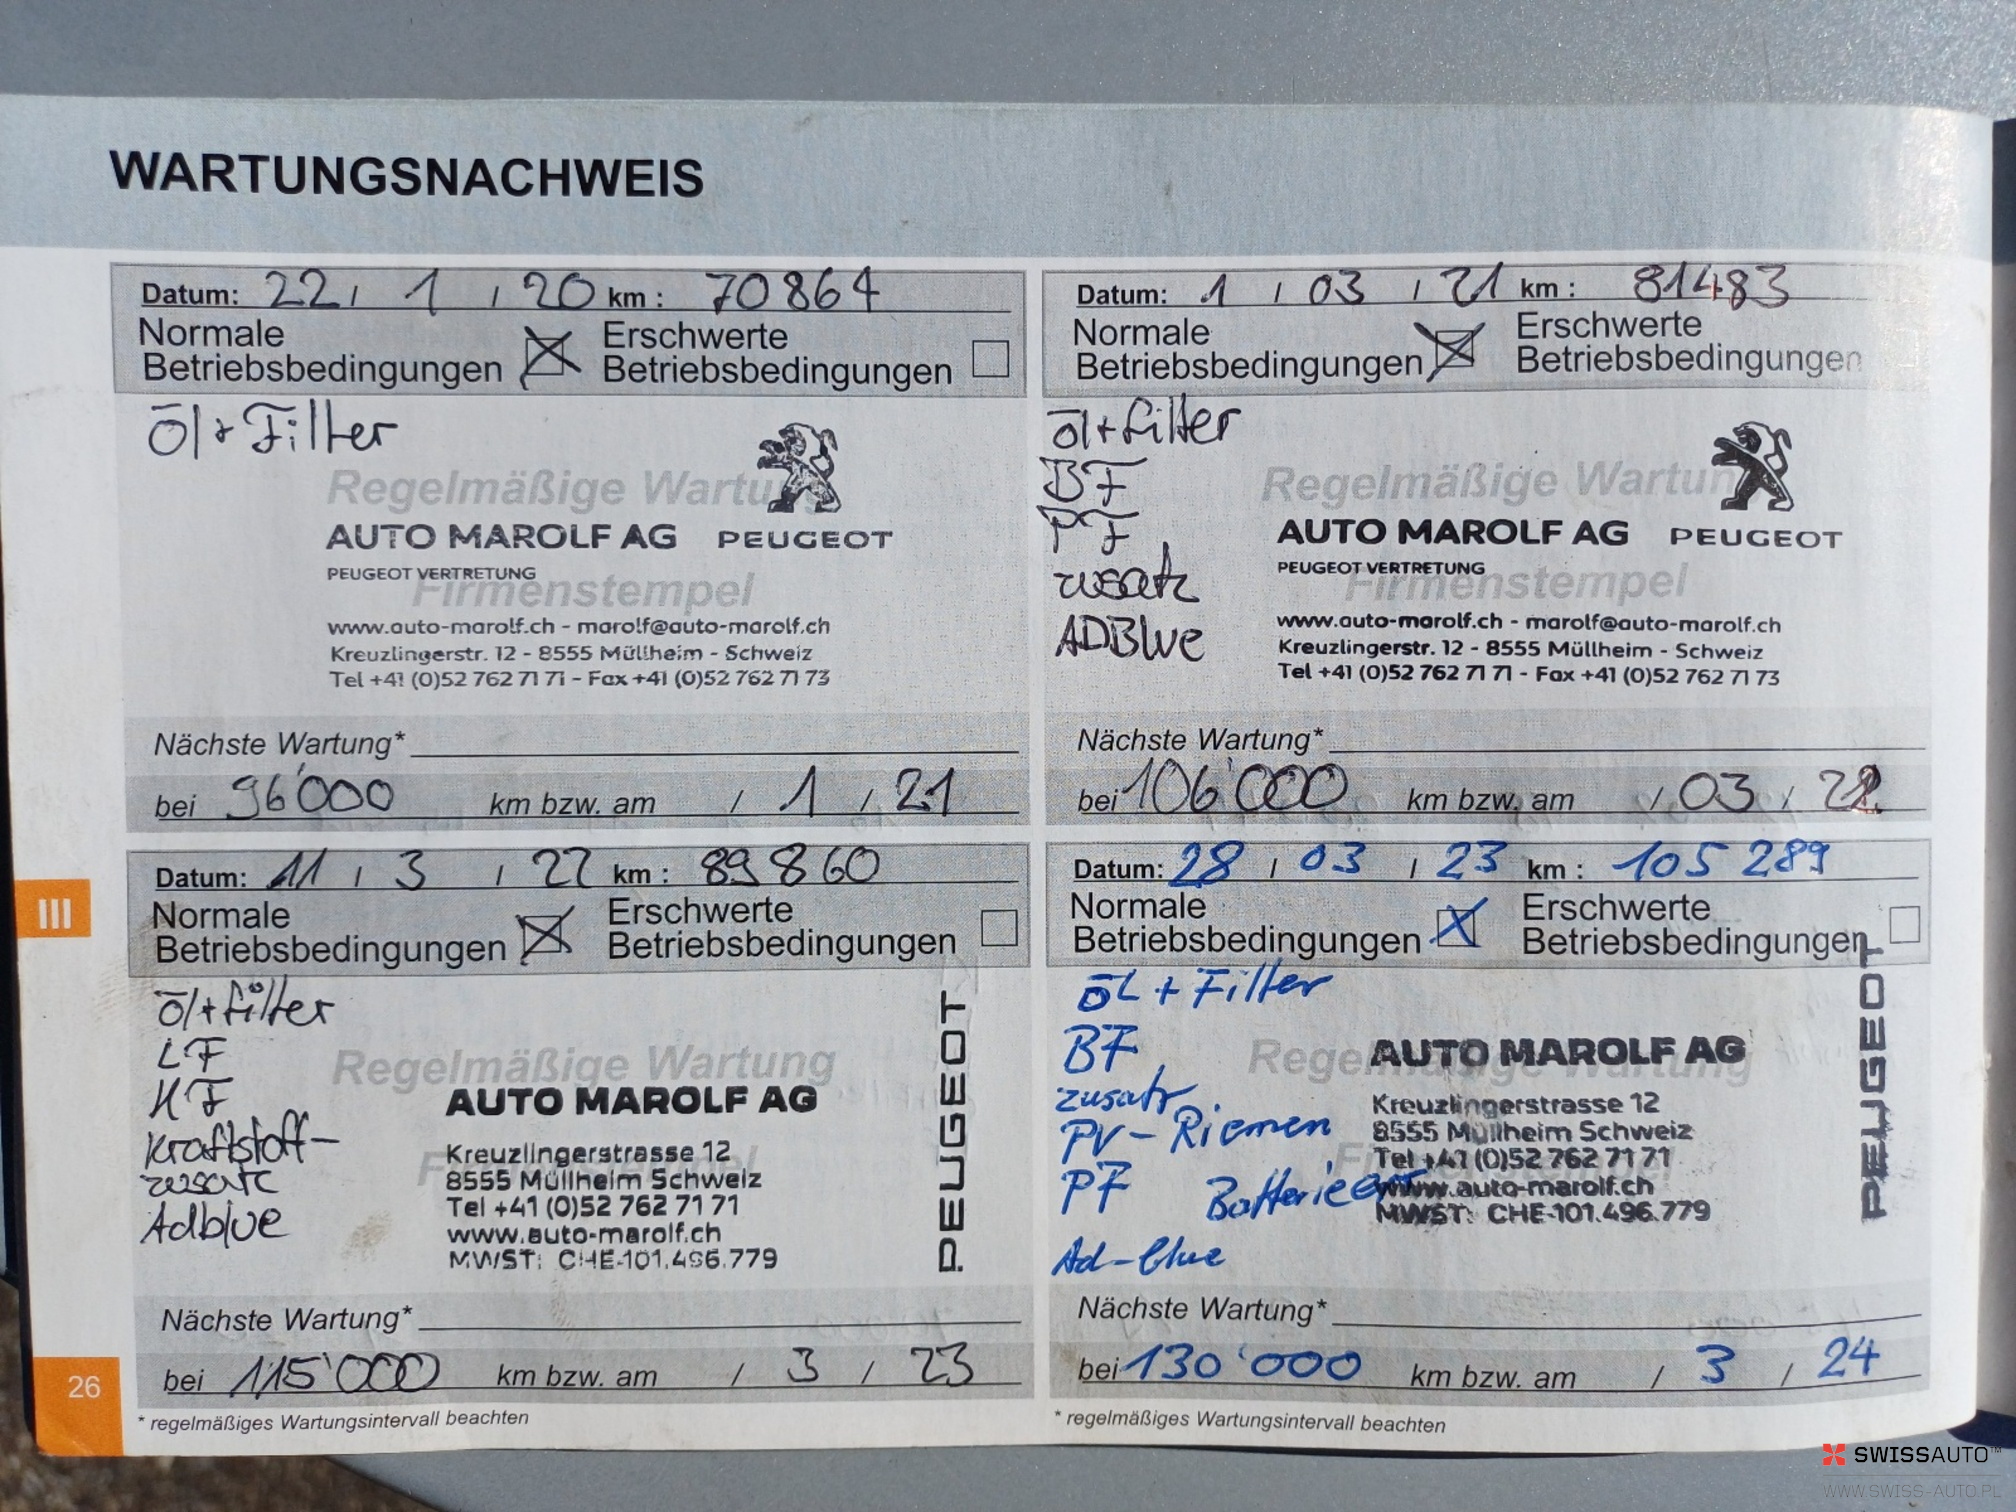 WARTUNGSNACHWEIS
Datum: 22 / 1 / 20 km : 70864
Normale Betriebsbedingungen Erschwerte Betriebsbedingungen
Öl + Filter
Regelmäßige Wartung
AUTO MAROLF AG PEUGEOT
PEUGEOT VERTRETUNG
Firmenstempel
www.auto-marolf.ch - marolf@auto-marolf.ch
Kreuzlingerstr. 12 - 8555 Müllheim - Schweiz
Tel +41 (0)52 762 71 71 - Fax +41 (0)52 762 71 73
Nächste Wartung*
bei 96'000 km bzw. am / 1 / 21
Datum: 1 / 03 / 21 km : 81483
Normale Betriebsbedingungen Erschwerte Betriebsbedingungen
Öl + Filter
BF
PF
zusatz
ADBlue
Regelmäßige Wartun
AUTO MAROLF AG PEUGEOT
PEUGEOT VERTRETUNG
Firmenstempel
www.auto-marolf.ch - marolf@auto-marolf.ch
Kreuzlingerstr. 12 - 8555 Müllheim - Schweiz
Tel +41 (0)52 762 71 71 - Fax +41 (0)52 762 71 73
Nächste Wartung*
bei 106'000 km bzw. am / 03 / 22
III
Datum: 11 / 3 / 22 km : 89860
Normale Betriebsbedingungen Erschwerte Betriebsbedingungen
Öl + filter
LF
KF
Kraftstoff-
zusatz
Adblue
Regelmäßige Wartung
AUTO MAROLF AG
Kreuzlingerstrasse 12
8555 Müllheim Schweiz
Tel +41 (0)52 762 71 71
www.auto-marolf.ch
MWST: CHE-101.496.779
PEUGEOT
Nächste Wartung*
bei 115'000 km bzw. am / 3 / 23
* regelmäßiges Wartungsintervall beachten
Datum: 28 / 03 / 23 km : 105 289
Normale Betriebsbedingungen Erschwerte Betriebsbedingungen
ÖL + Filter
BF
zusatz
PV-Riemen
PF
Ad-blue
Regelmäßige Wartung
AUTO MAROLF AG
Kreuzlingerstrasse 12
8555 Müllheim Schweiz
Tel +41 (0)52 762 71 71
www.auto-marolf.ch
MWST: CHE-101.496.779
PEUGEOT
Nächste Wartung*
bei 130'000 km bzw. am / 3 / 24
* regelmäßiges Wartungsintervall beachten
26
SWISSAUTO™
WWW.SWISS-AUTO.PL